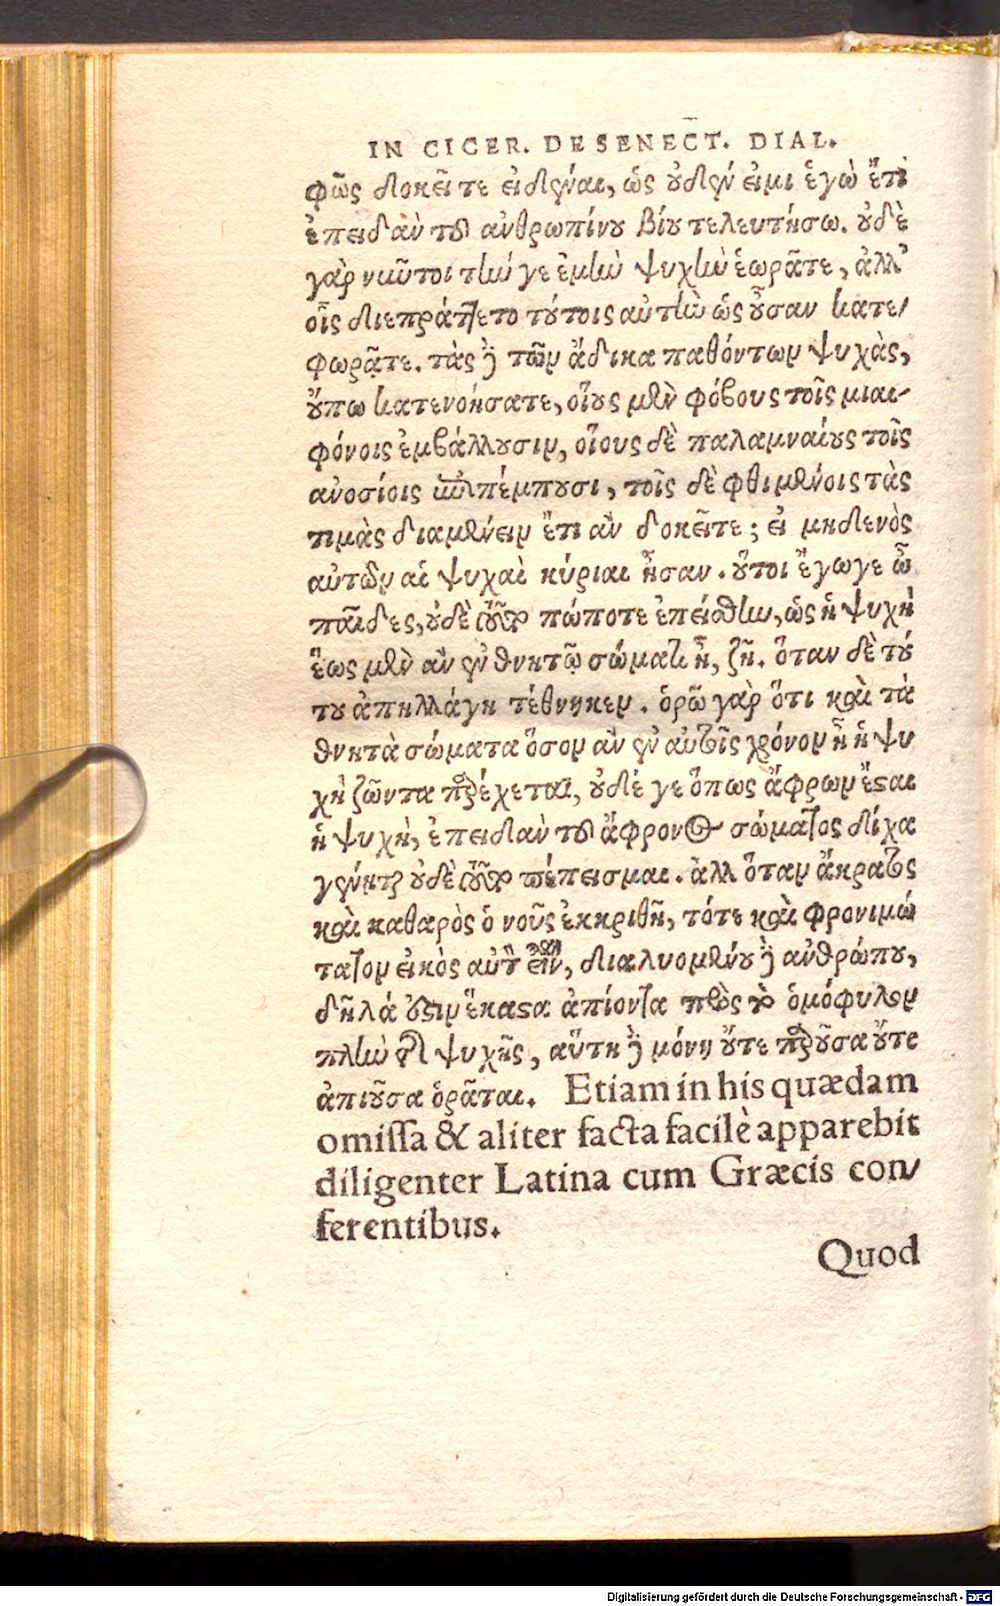 IN CICER. DE SENECT. DIAL.
φῶς δοκεῖτε εἰδέναι, ὡς οὐδέν εἰμι ἐγὼ ἔτι
ἐπειδὰν τοῦ ἀνθρωπίνου βίου τελευτήσω. οὐδὲ
γὰρ νῦν τοι τήν γε ἐμὴν ψυχὴν ἑωρᾶτε, ἀλλ'
οἷς διεπράττετο τούτοις αὐτὴν ὡς οὖσαν κατε/
φωρᾶτε. τὰς δὲ τῶν ἄδικα παθόντων ψυχὰς,
οὔπω κατενοήσατε, οἵους μὲν φόβους τοῖς μιαι-
φόνοις ἐμβάλλουσιν, οἵους δὲ παλαμναίους τοῖς
ἀνοσίοις ἐπιπέμπουσι, τοῖς δὲ φθιμένοις τὰς
τιμὰς διαμένειν ἔτι ἂν δοκεῖτε; εἰ μηδενὸς
αὐτῶν αἱ ψυχαὶ κύριαι ἦσαν. οὔτοι ἔγωγε ὦ
παῖδες, οὐδὲ τοῦτο πώποτε ἐπείσθην, ὡς ἡ ψυχὴ
ἕως μὲν ἂν ἐν θνητῷ σώματι ᾖ, ζῇ. ὅταν δὲ τού
του ἀπηλλάγη τέθνηκεν. ὁρῶ γὰρ ὅτι καὶ τὰ
θνητὰ σώματα ὅσον ἂν ἐν αὐτοῖς χρόνον ᾖ ἡ ψυ
χὴ ζῶντα παρέχεται, οὐδέ γε ὅπως ἄφρων ἔσται
ἡ ψυχὴ, ἐπειδὰν τοῦ ἄφρονος σώματος δίχα
γένηται οὐδὲ τοῦτο πέπεισμαι. ἀλλ ὅταν ἄκρατος
καὶ καθαρὸς ὁ νοῦς ἐκκριθῇ, τότε καὶ φρονιμώ
τατον εἰκὸς αὐτὸν εἶναι, διαλυομένου δὲ ἀνθρώπου,
δῆλά ἐστιν ἕκαστα ἀπίοντα πρὸς τὸ ὁμόφυλον
πλὴν τῆς ψυχῆς, αὕτη δὲ μόνη οὔτε παροῦσα οὔτε
ἀπιοῦσα ὁρᾶται. Etiam in his quædam
omissa & aliter facta facilè apparebit
diligenter Latina cum Græcis con/
ferentibus.
Quod
Digitalisierung gefördert durch die Deutsche Forschungsgemeinschaft - DFG